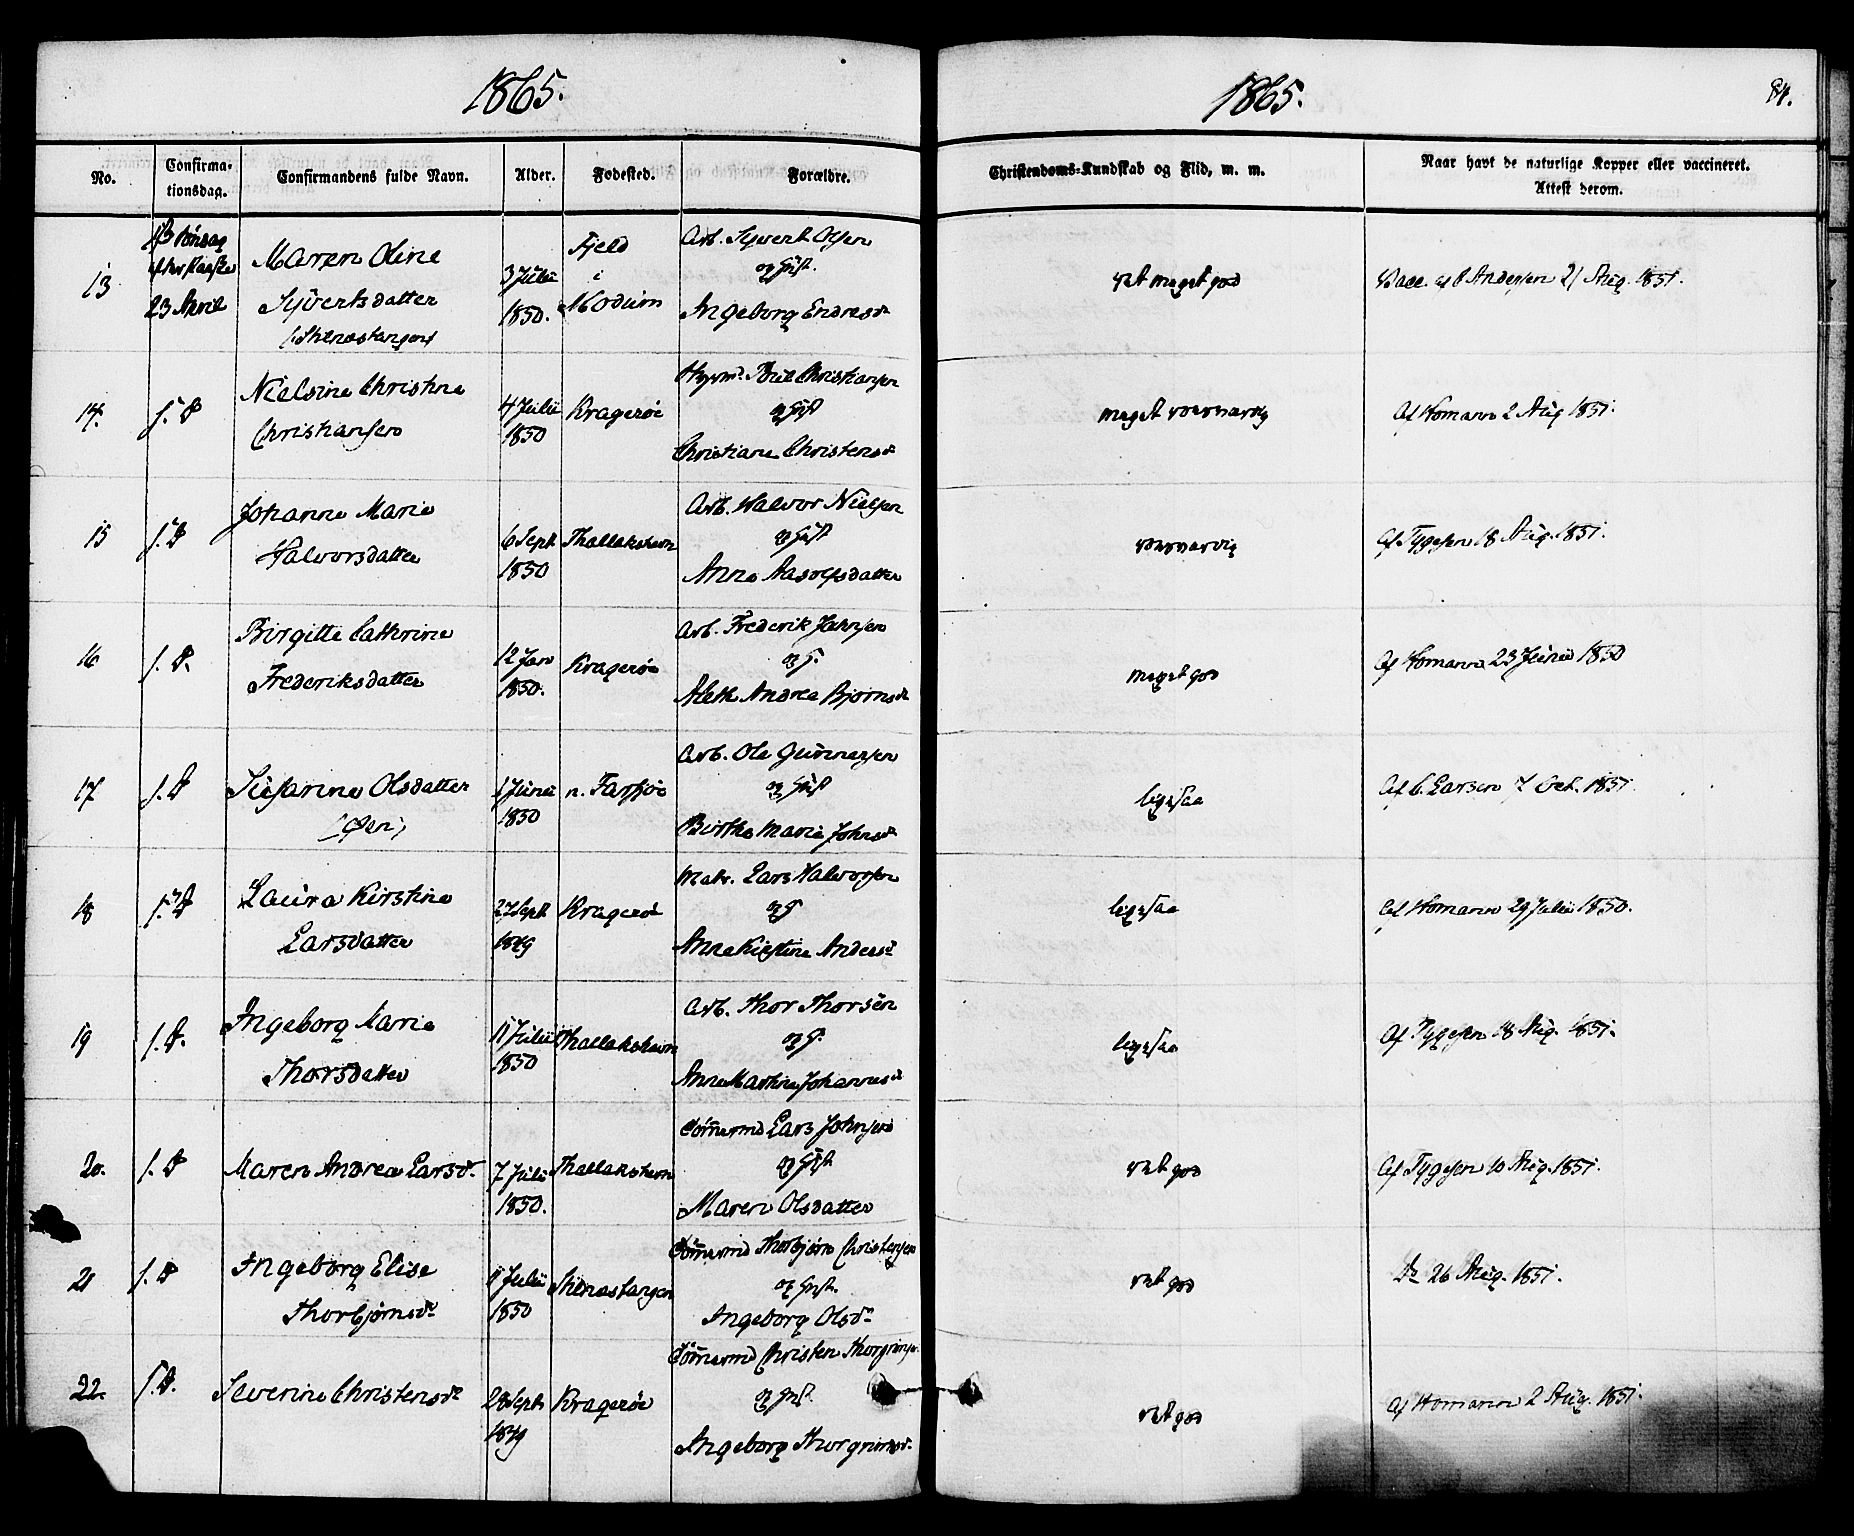 1865.
1865.
84.
No.
Confirma-
tionsdag.
Confirmandens fulde Navn.
Alder.
Fødested.
Forældre.
Christendoms-Kundskab og Flid, m. m.
Naar havt de naturlige Kopper eller vaccineret.
Attest derom.
13
Søndag
efter Paaske
23 April
Maren Oline
Syvertsdatter
(Stenestangen)
3 Julii
1850.
Fjeld
i
Modum
Arb. Syvert Olsen
og Hust.
Ingeborg Endresd.
ret meget god
Vacc. af C Andersen 21 Aug. 1851.
14.
s. D
Nielsine Christine
Christiansen
4 Julii
1850
Kragerøe
Christiansen
og Hust
Christiane Christensd.
meget
Af Homann 2 Aug 1851.
15
s. D
Johanne Marie
Halvorsdatter
6 Sept
1850
Thallakshavn
Arb. Halvor Nielsen
og Hust
Anne Aasolfsdatter
Af Tygesen 18 Aug. 1851.
16
s. D.
Birgitte Cathrine
Frederiksdatter
12 Jan
1850.
Kragerøe
Arb. Frederik Jahnsen
og H.
Aleth Andrea Bjørnsd.
meget god
Af Homann 23 Junii 1850
17
s. D
Susanne Olsdatter
(Øen)
1 Junii
1850
n. Farsjøe
Arb. Ole Gunnersen
og Hust
Birthe Maria Johnsd.
ligesaa
Af C. Larsen 7 Oct. 1851.
18
s. D
Laura Kirstine
Larsdatter
27 Sept
1849
Kragerøe
Matr. Lars Halvorsen
og H
Anne Kirstine Andersd.
ligesaa
Af Homann 29 Julii 1850.
19
s. D.
Ingeborg Marie
Thorsdatter
11 Julii
1850
Thallakshavn
Arb. Thor Thorsen
og H.
Anne Marthine Johannesd.
ligesaa
Af Tygesen 18 Aug. 1851.
20.
s. D
Maren Andrea Larsd.
7 Julii
1850.
Thallakshavn
Tømermd Lars Johnsen
og Hust
Maren Olsdatter
ret god
Af Tygesen 10 Aug. 1851.
21
s. D
Ingeborg Elise
Thorbjørnsd.
11 Julii
1850
Stenestangen
Tømermd Thorbjørn Christensen
og Hust.
Ingeborg Olsd.
ret god
Do 26 Aug. 1851.
22.
s. D.
Severine Christensd.
28 Sept.
1849
Kragerøe
Tømermd Christen Thorgrimsen
og Hust.
Ingeborg Thorgrimsd.
ret god
Af Homann 2 Aug. 1851.